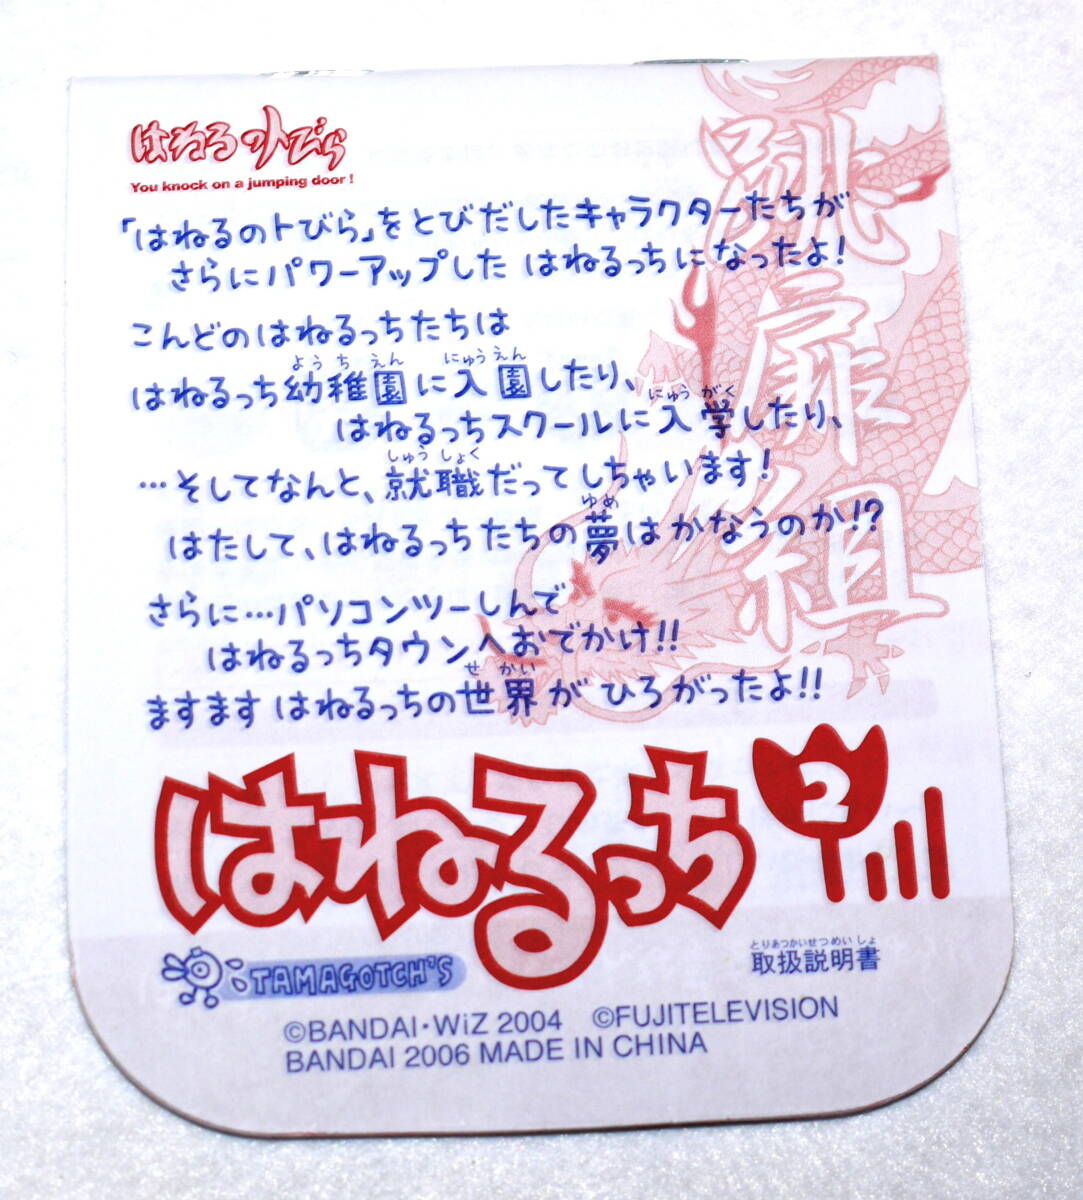 はねるのトびら
You knock on a jumping door!
「はねるのトびら」をとびだしたキャラクターたちが
さらにパワーアップした はねるっちになったよ!
こんどのはねるっちたちは
ようちえん にゅうえん
はねるっち幼稚園に入園したり、
にゅうがく
はねるっちスクールに入学したり、
しゅうしょく
…そしてなんと、就職だってしちゃいます!
ゆめ
はたして、はねるっちたちの夢はかなうのか!?
さらに…パソコンツーしんで
はねるっちタウンへおでかけ!!
せかい
ますます はねるっちの世界が ひろがったよ!!
跳扉組
はねるっち
2
TAMAGOTCH'S
とりあつかいせつめいしょ
取扱説明書
©BANDAI・WiZ 2004 ©FUJITELEVISION
BANDAI 2006 MADE IN CHINA